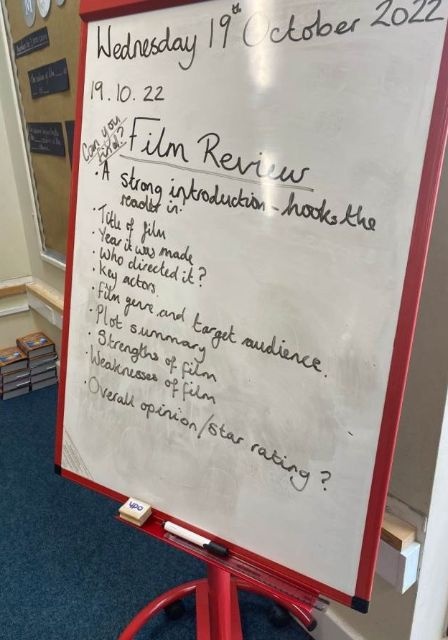 Wednesday 19th October 2022
19.10.22
Can you find?
Film Review
· A strong introduction - hooks the
reader in.
· Title of film
· Year it was made
· Who directed it?
· Key actors
· Film genre and target audience.
· Plot summary
· Strengths of film
· Weaknesses of film
· Overall opinion/star rating?
ypo